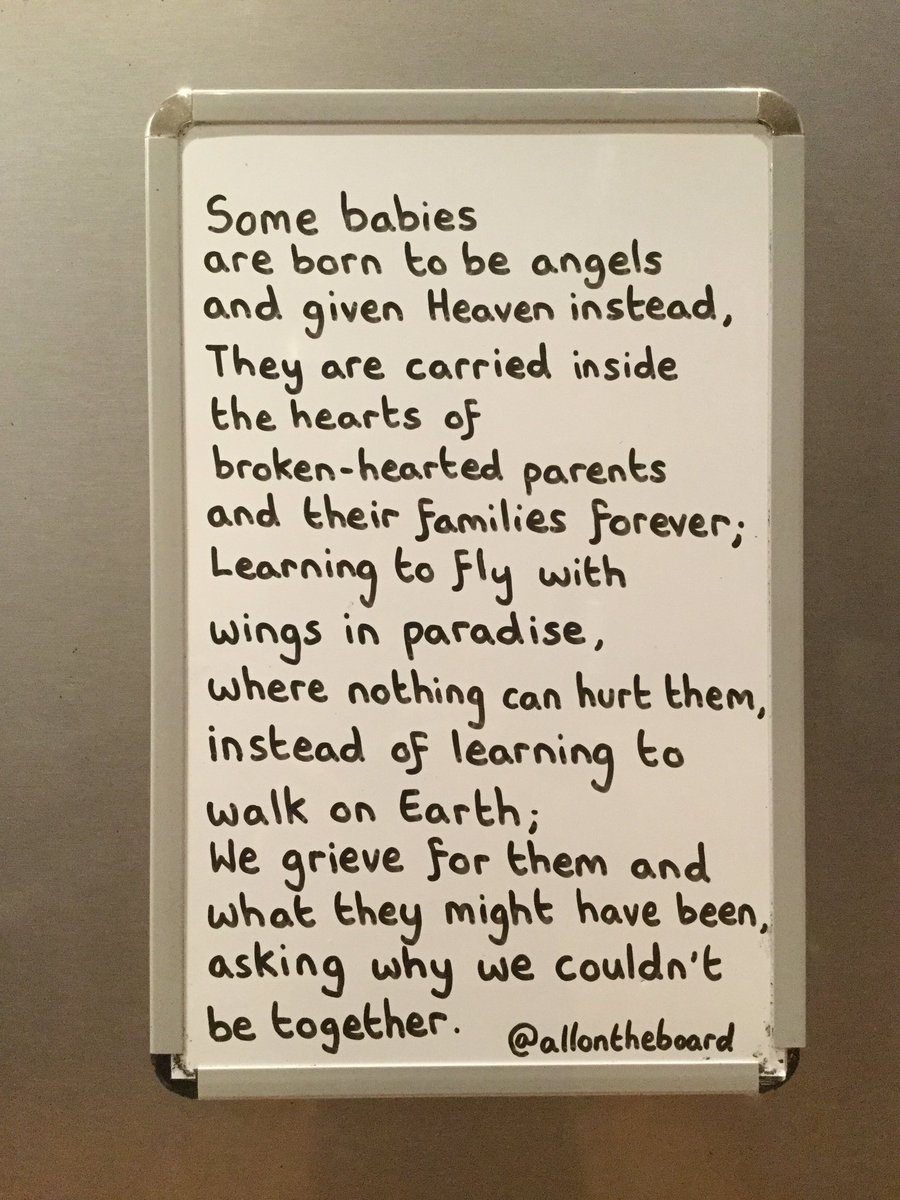 Some babies
are born to be angels
and given Heaven instead,
They are carried inside
the hearts of
broken-hearted parents
and their families forever;
Learning to fly with
wings in paradise,
where nothing can hurt them,
instead of learning to
walk on Earth;
We grieve for them and
what they might have been,
asking why we couldn't
be together.
@allontheboard